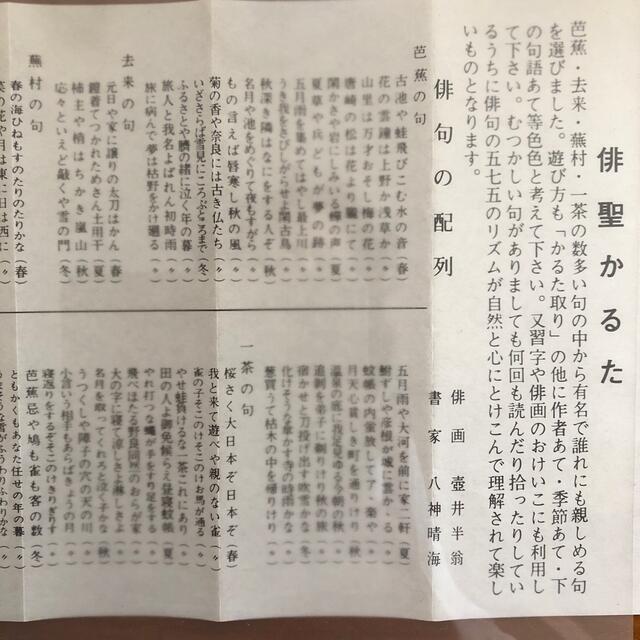 俳聖かるた
芭蕉・去来・蕪村・一茶の数多い句の中から有名で誰れにも親しめる句
を選びました。遊び方も「かるた取り」の他に作者あて・季節あて・下
の句語あて等色色と考えて下さい。又習字や俳画のおけいこにも利用し
て下さい。むつかしい句がありましても何回も読んだり拾ったりしてい
るうちに俳句の五七五のリズムが自然と心にとけこんで理解されて楽し
いものとなります。
俳画 壺井半翁
書家 八神晴海
俳句の配列
芭蕉の句
古池や蛙飛びこむ水の音(春)
花の雲鐘は上野か浅草か(〃)
山里は万才おそし梅の花(〃)
唐崎の松は花より朧にて(〃)
閑かさや岩にしみいる蝉の声(夏)
夏草や兵どもが夢の跡(〃)
五月雨を集めてはやし最上川(〃)
うき我をさびしがらせよ閑古鳥(〃)
秋深き隣はなにをする人ぞ(秋)
名月や池をめぐりて夜もすがら(〃)
もの言えば唇寒し秋の風(〃)
菊の香や奈良には古き仏たち(〃)
いざさらば雪見にころぶところまで(冬)
ふるさとや臍の緒に泣く年の暮(〃)
旅人と我名よばれん初時雨(〃)
旅に病んで夢は枯野をかけ廻る(〃)
去来の句
元日や家に譲りの太刀はかん(春)
鎧着てつかれためさん土用干(夏)
柿主や梢はちかき嵐山(秋)
応々といえど敲くや雪の門(冬)
蕪村の句
春の海ひねもすのたりのたりかな(春)
菜の花や月は東に日は西に(〃)
五月雨や大河を前に家二軒(夏)
鮒ずしや彦根が城に雲かゝる(〃)
蚊帳の内に蛍放してアゝ楽や(〃)
月天心貧しき町を通りけり(秋)
温泉の底に我足見ゆる今朝の秋(〃)
追剥を弟子に剃りけり秋の旅(〃)
宿かせと刀投げ出す吹雪かな(冬)
化けそうな傘かす寺の時雨かな(〃)
葱買うて枯木の中を帰りけり(〃)
一茶の句
桜さく大日本ぞ日本ぞ(春)
我と来て遊べや親のない雀(〃)
雀の子そこのけそこのけお馬が通る(〃)
やせ蛙負けるな一茶これにあり(〃)
田の人よ御免候らえ昼寝蚊帳(夏)
やれ打つな蠅が手をすり足をする(〃)
飛べほたる野良同然のおらが家(〃)
大の字に寝て涼しさよ淋しさよ(〃)
名月を取ってくれろと泣く子かな(秋)
うつくしや障子の穴の天の川(〃)
小言いう相手もあらばきょうの月(〃)
寝返りをするぞそこのけきりぎりす(〃)
芭蕉忌や鳩も雀も客の数(冬)
ともかくもあなた任せの年の暮(〃)
うまそうな雪がふうわりふわりかな(〃)